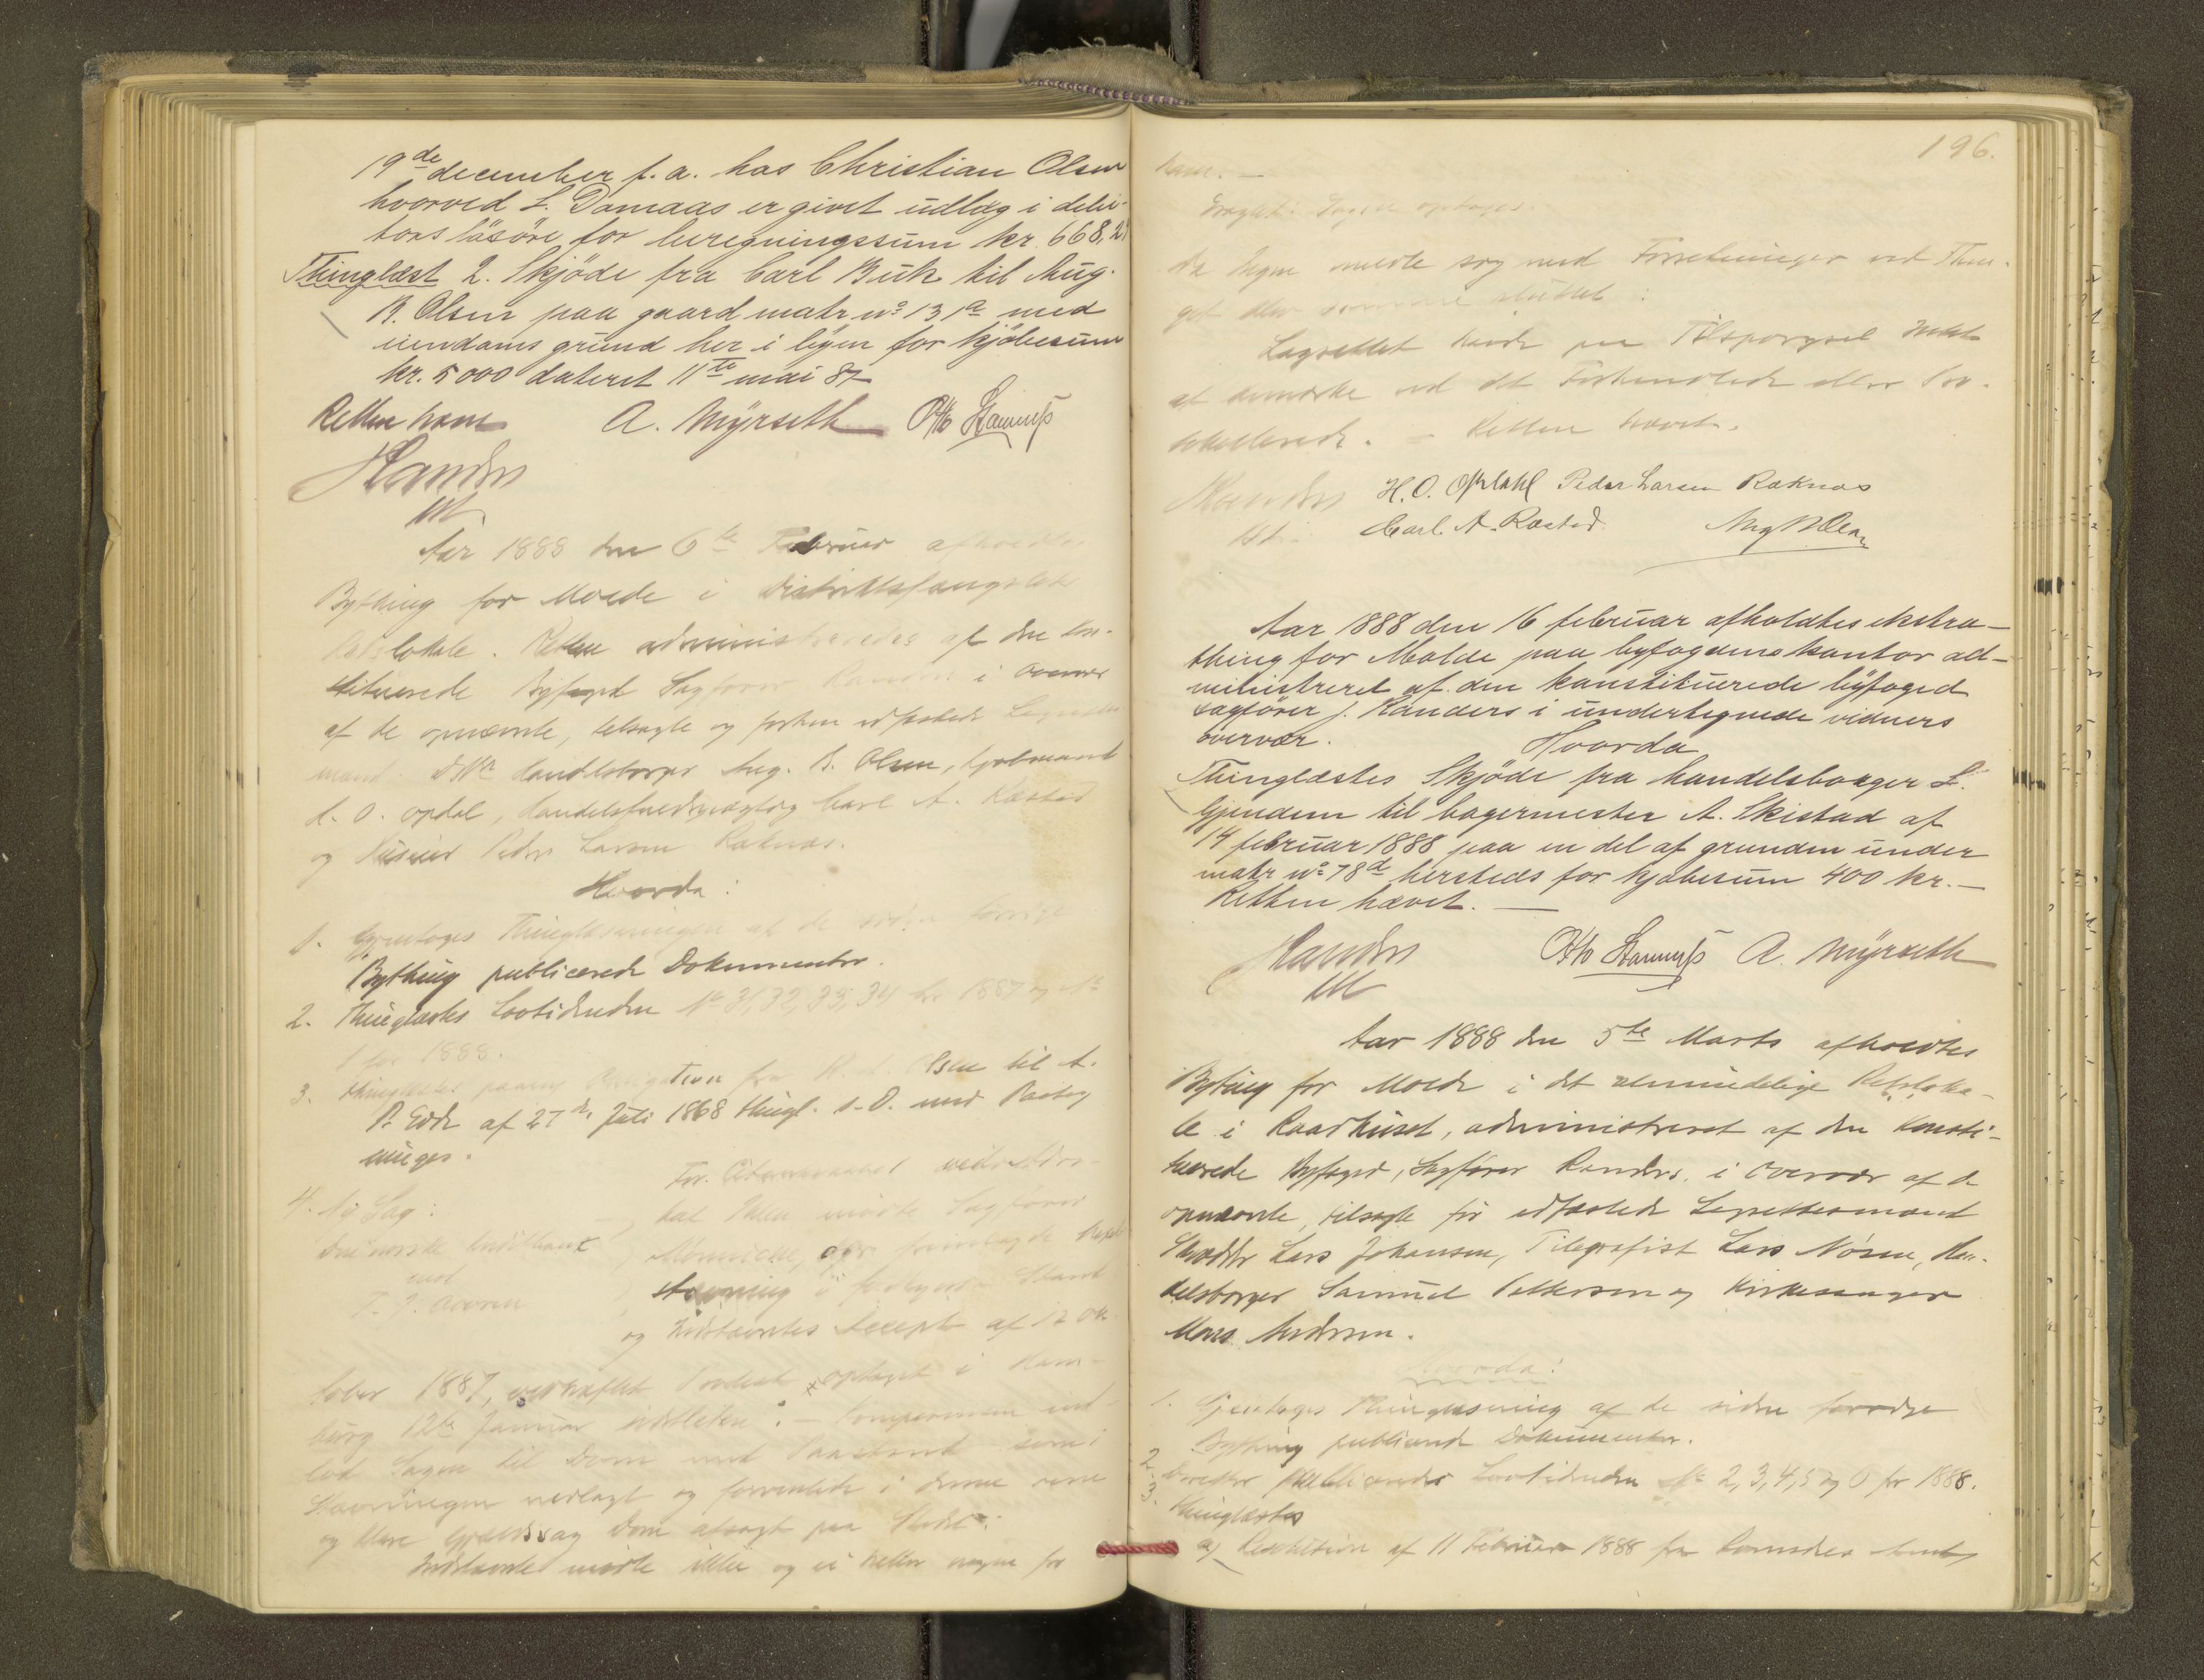 19de december f. a. hos Christian Olsen
hvorved L. Damaas er givet udlæg i debi-
tors løsøre for beregningssum kr. 668,2
Thinglæst 2. Skjöde fra Carl Buck til Aug.
B. Olsen paa gaard matr no 131a med
eiendoms grund her i byen for kjöbesum
kr. 5000 dateret 11te mai 87
Retten hævet A. Myrseth Otto
Randers
Aar 1888 den 6te Februar afholdtes
Bything for Molde i Distriktsfængslets
Retslokale. Retten administreredes af den kon-
stituerede Byfoged Sagfører Randers i Overvær
af de opnævnte, tilsagte og forhen edfæstede
mænd Handelsborger Aug. B. Olsen, Kjøbmand
H. O. Opdal, Handelsfuldmægtig Carl A. Ræstad
og Peder Larsen Raknæs.
Hvorda:
1. Gjentoges Thinglæsningen af de sidste forrige
Bything publicerede Dokumenter.
2. Thinglæstes Lovtidenden No 31, 32, 33, 34 for 1887 og No
1 for 1888.
3. Obligation fra Olsen til A.
P. af 27de Juli 1868 thingl. s. D. med Paateg
ninger.
4. Ny Sag: For vedrørdes-
Den norske Creditbank tal mødte Sagfører
mod
T. J.
Stævning i
og Indstævntes Accept af 12 Ok-
tober 1887, vedhæftet Protest optaget i Ham-
burg 12te Januar sidstleden. - Comparenten ind-
lod Sagen til Dom med Paastand som i
Stævningen nedlagt og forventede i denne rene
og klare Gjældssag Dom afsagt paa Stedet.
Indstævnte mødte ikke og ei heller nogen for
196.
ham. —
Eragtet: Sagen optages.
Da Ingen meldte sig med Forretninger ved Thin-
get blev samme sluttet:
Lagrettet havde paa Tilspørgsel Intet
at bemærke ved det Forhandlede eller Pro-
tokollerede. — Retten hævet.
Randers H. O. Opdahl Peder Larsen Raknæs
Carl. A. Ræstad. Aug B Olsen
Aar 1888 den 16 februar afholdtes ekstra-
thing for Molde paa byfogdens kontor ad-
ministreret af den konstituerede byfoged
sagförer J. Randers i undertegnede vidners
overvær.
Hvorda
Thinglæstes Skjöde fra handelsborger L.
Gjendem til bagermester A. Skistad af
14 februar 1888 paa en del af grunden under
matr no 78d hersteds for kjøbesum 400 kr. —
Retten hævet. —
Randers Otto A. Myrseth
Aar 1888 den 5te Marts afholdtes
Bything for Molde i det almindelige Retsloka-
le i Raadhuset, administreret af den konsti-
tuerede Byfoged, Sagfører Randers, i Overvær af de
opnævnte, tilsagte før edfæstede Lagrettesmænd
Skrædder Lars Johansen, Telegrafist Lars Nösen, Han-
delsborger Samuel Pettersen og Kirkesanger
Mons Andersen.
Hvorda:
1. Gjentoges Thinglæsning af de siden forrige
Bything publicerede Dokumenter.
2. Derefter publiceredes Lovtidenden No 2, 3, 4, 5 og 6 for 1888.
3. Thinglæstes
a) Resolution af 11 Februar 1888 fra Romsdals Amt